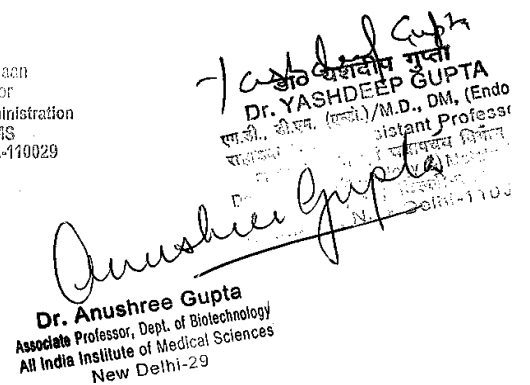 aan
or
inistration
-110029
Yashdeep Gupta
डा० यशदीप गुप्ता
Dr. YASHDEEP GUPTA
एम.डी., डी.एम. (एन्डो.)/M.D., DM, (Endo
sistant Professo
Anushree Gupta
Delhi-1100
Dr. Anushree Gupta
Associate Professor, Dept. of Biotechnology
All India Institute of Medical Sciences
New Delhi-29